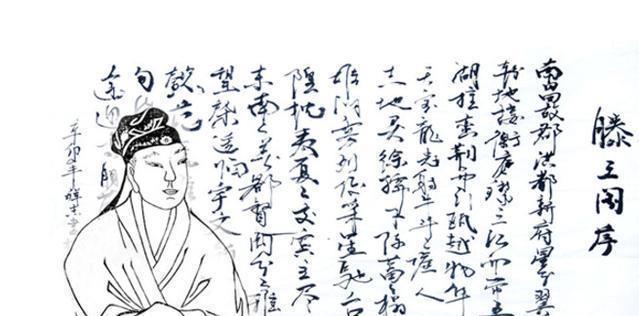 滕王阁序
南昌故郡洪都新府星分翼
轸地接衡庐襟三江而带五
湖控蛮荆而引瓯越物华
天宝龙光射斗之墟人
杰地灵徐孺下陈蕃榻
雄州雾列俊采星驰台
隍枕夷夏之交宾主尽
东南之美都督阎公之雅
望棨遥临宇文
懿范
辛卯年